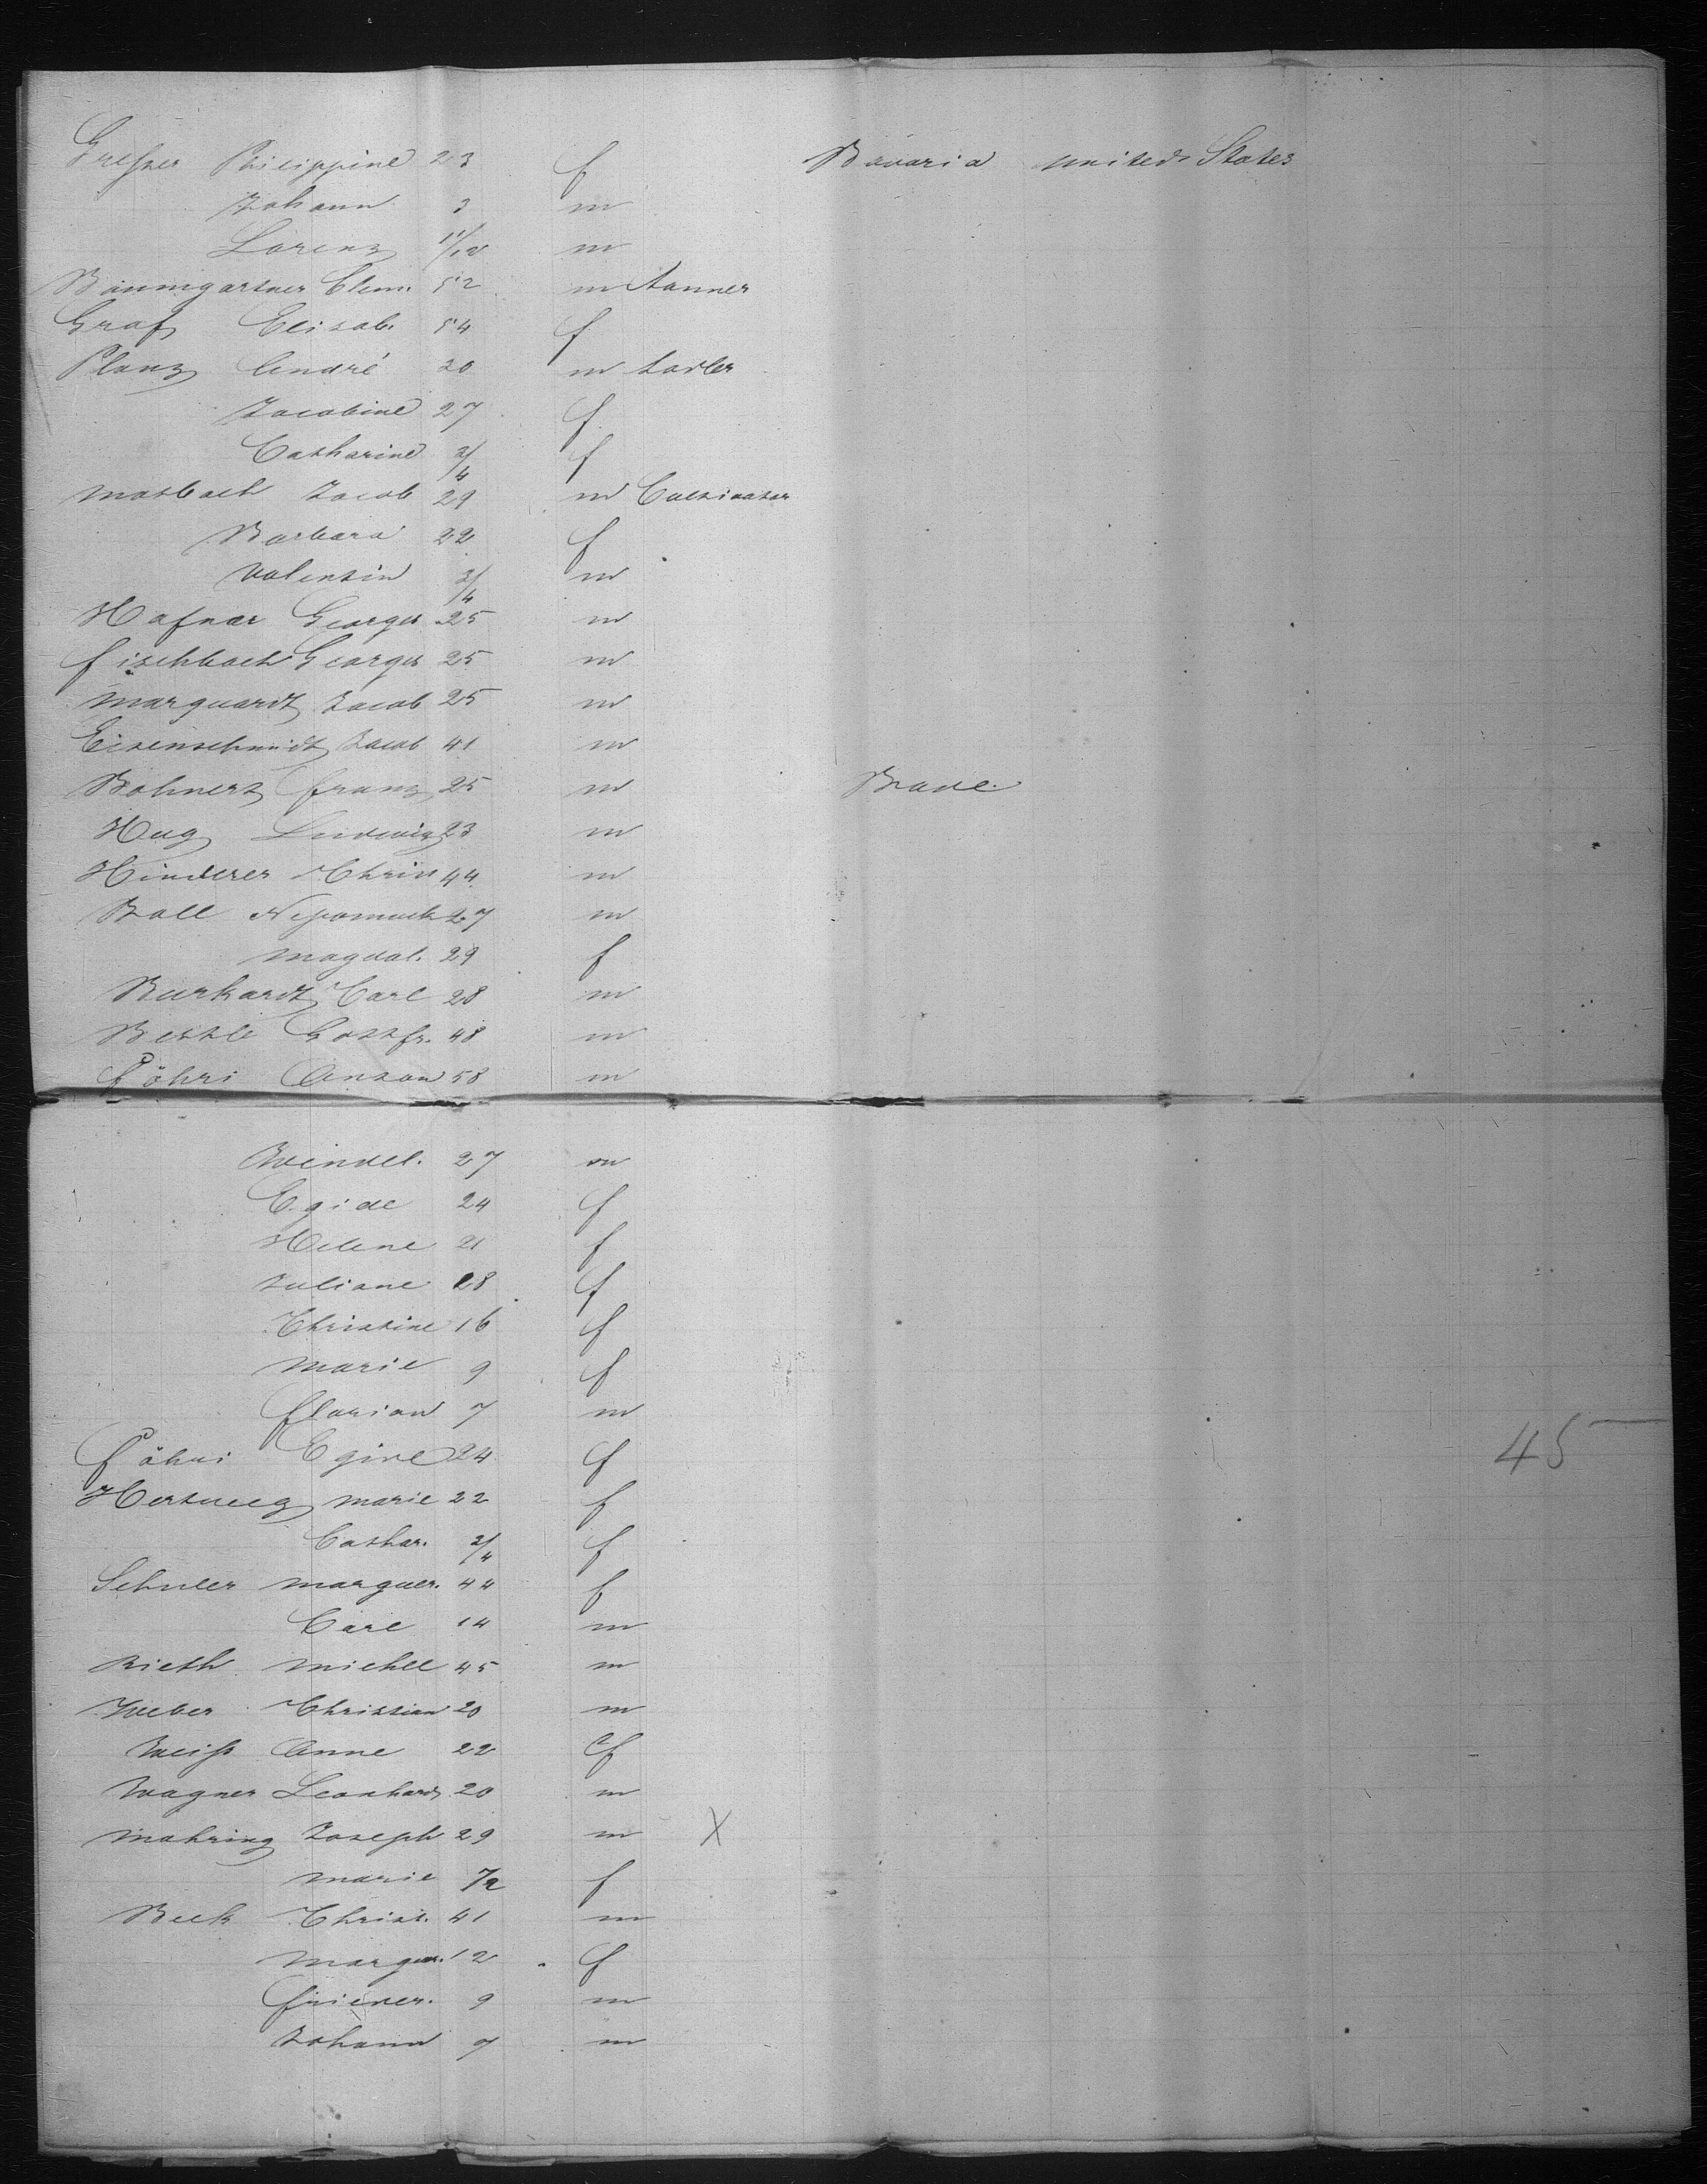 Philippine 23 f Bavaria united States
Johann 3 m
Lorenz 11/12 m
Baumgartner Clem. 52 m tanner
Graf Elisab. 54 f
Planz André 30 m
Jacobine 27 f
Catharine 3/4 f
Mosbach Jacob 29 m Cultivator
Barbara 22 f
Valentin 3/4 m
Hafner Georges 25 m
Fischbach Georges 25 m
Marquardt Jacob 25 m
Eisenschmidt Jacob 41 m
Bohnert Franz 25 m Bade.
Hug Ludwig 23 m
Hinderer Chris 44 m
Boll Nepomuck 27 m
Magdal. 29 f
Burkardt Carl 28 m
Gottfr. 48 m
Föhri Anton 58 m
Wendel. 27 m
Egide 24 f
Helene 21 f
Juliane 18 f
Christine 16 f
Marie 9 f
Florian 7 m
Föhri Egide 24 f 45
Hertweg Marie 22 f
Cathar. 3/4 f
Schuler Marguer. 44 f
Carl 14 m
Rieth Michel 45 m
Weber Christian 20 m
Weiss Anne 22 f
Wagner Leonhard 20 m
Mohring Joseph 29 m X
Marie f
Beck Christ. 41 m
Marguer. 12 f
Frieder. 9 m
Johann 7 m